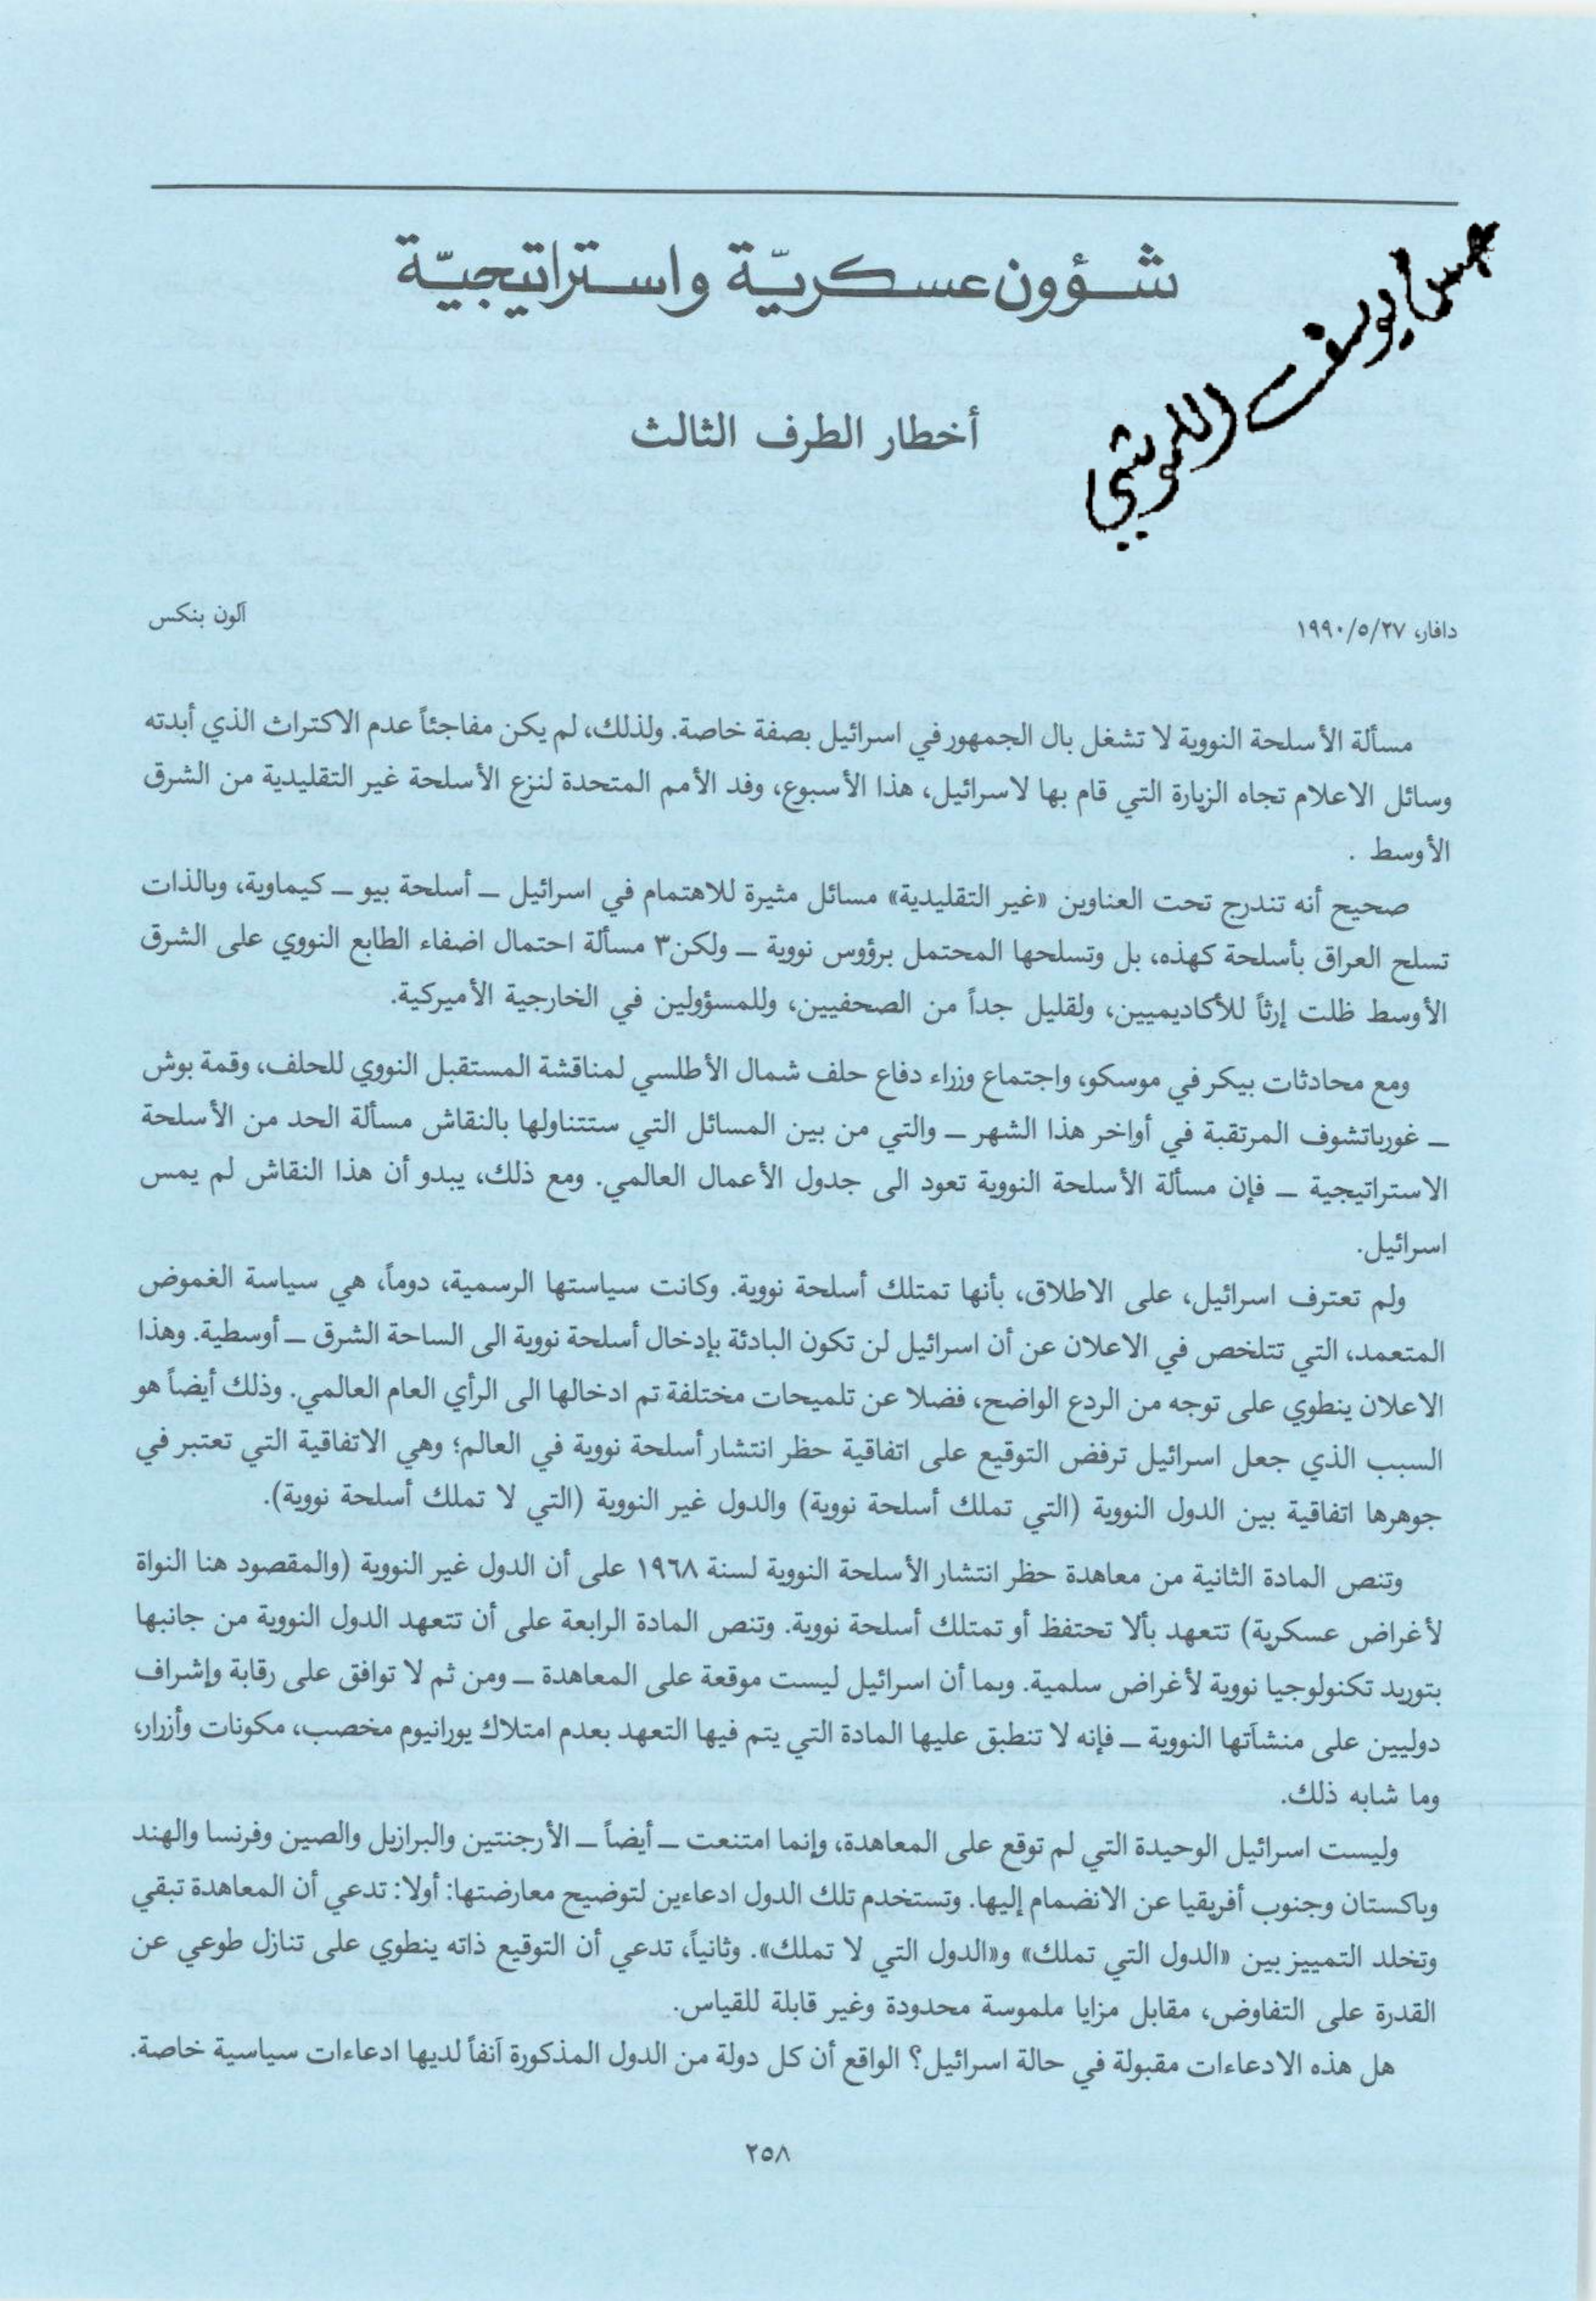 شؤون عسكريّة واستراتيجيّة
حسن يوسف اللموشي
أخطار الطرف الثالث
دافار، ٢٧/٥/١٩٩٠
آلون بنكس
مسألة الأسلحة النووية لا تشغل بال الجمهور في اسرائيل بصفة خاصة. ولذلك، لم يكن مفاجئاً عدم الاكتراث الذي أبدته
وسائل الاعلام تجاه الزيارة التي قام بها لاسرائيل، هذا الأسبوع، وفد الأمم المتحدة لنزع الأسلحة غير التقليدية من الشرق
الأوسط .
صحيح أنه تندرج تحت العناوين «غير التقليدية» مسائل مثيرة للاهتمام في اسرائيل ــ أسلحة بيو ــ كيماوية، وبالذات
تسلح العراق بأسلحة كهذه، بل وتسلحها المحتمل برؤوس نووية ــ ولكن٣ مسألة احتمال اضفاء الطابع النووي على الشرق
الأوسط ظلت إرثاً للأكاديميين، ولقليل جداً من الصحفيين، وللمسؤولين في الخارجية الأميركية.
ومع محادثات بيكر في موسكو، واجتماع وزراء دفاع حلف شمال الأطلسي لمناقشة المستقبل النووي للحلف، وقمة بوش
ــ غورباتشوف المرتقبة في أواخر هذا الشهر ــ والتي من بين المسائل التي ستتناولها بالنقاش مسألة الحد من الأسلحة
الاستراتيجية ــ فإن مسألة الأسلحة النووية تعود الى جدول الأعمال العالمي. ومع ذلك، يبدو أن هذا النقاش لم يمس
اسرائيل.
ولم تعترف اسرائيل، على الاطلاق، بأنها تمتلك أسلحة نووية. وكانت سياستها الرسمية، دوماً، هي سياسة الغموض
المتعمد، التي تتلخص في الاعلان عن أن اسرائيل لن تكون البادئة بإدخال أسلحة نووية الى الساحة الشرق ــ أوسطية. وهذا
الاعلان ينطوي على توجه من الردع الواضح، فضلا عن تلميحات مختلفة تم ادخالها الى الرأي العام العالمي. وذلك أيضاً هو
السبب الذي جعل اسرائيل ترفض التوقيع على اتفاقية حظر انتشار أسلحة نووية في العالم؛ وهي الاتفاقية التي تعتبر في
جوهرها اتفاقية بين الدول النووية (التي تملك أسلحة نووية) والدول غير النووية (التي لا تملك أسلحة نووية).
وتنص المادة الثانية من معاهدة حظر انتشار الأسلحة النووية لسنة ١٩٦٨ على أن الدول غير النووية (والمقصود هنا النواة
لأغراض عسكرية) تتعهد بألا تحتفظ أو تمتلك أسلحة نووية. وتنص المادة الرابعة على أن تتعهد الدول النووية من جانبها
بتوريد تكنولوجيا نووية لأغراض سلمية. وبما أن اسرائيل ليست موقعة على المعاهدة ــ ومن ثم لا توافق على رقابة وإشراف
دوليين على منشآتها النووية ــ فإنه لا تنطبق عليها المادة التي يتم فيها التعهد بعدم امتلاك يورانيوم مخصب، مكونات وأزرار،
وما شابه ذلك.
وليست اسرائيل الوحيدة التي لم توقع على المعاهدة، وإنما امتنعت ــ أيضاً ــ الأرجنتين والبرازيل والصين وفرنسا والهند
وباكستان وجنوب أفريقيا عن الانضمام إليها. وتستخدم تلك الدول ادعاءين لتوضيح معارضتها: أولا: تدعي أن المعاهدة تبقي
وتخلد التمييز بين «الدول التي تملك» و«الدول التي لا تملك». وثانياً، تدعي أن التوقيع ذاته ينطوي على تنازل طوعي عن
القدرة على التفاوض، مقابل مزايا ملموسة محدودة وغير قابلة للقياس.
هل هذه الادعاءات مقبولة في حالة اسرائيل؟ الواقع أن كل دولة من الدول المذكورة آنفاً لديها ادعاءات سياسية خاصة.
٢٥٨